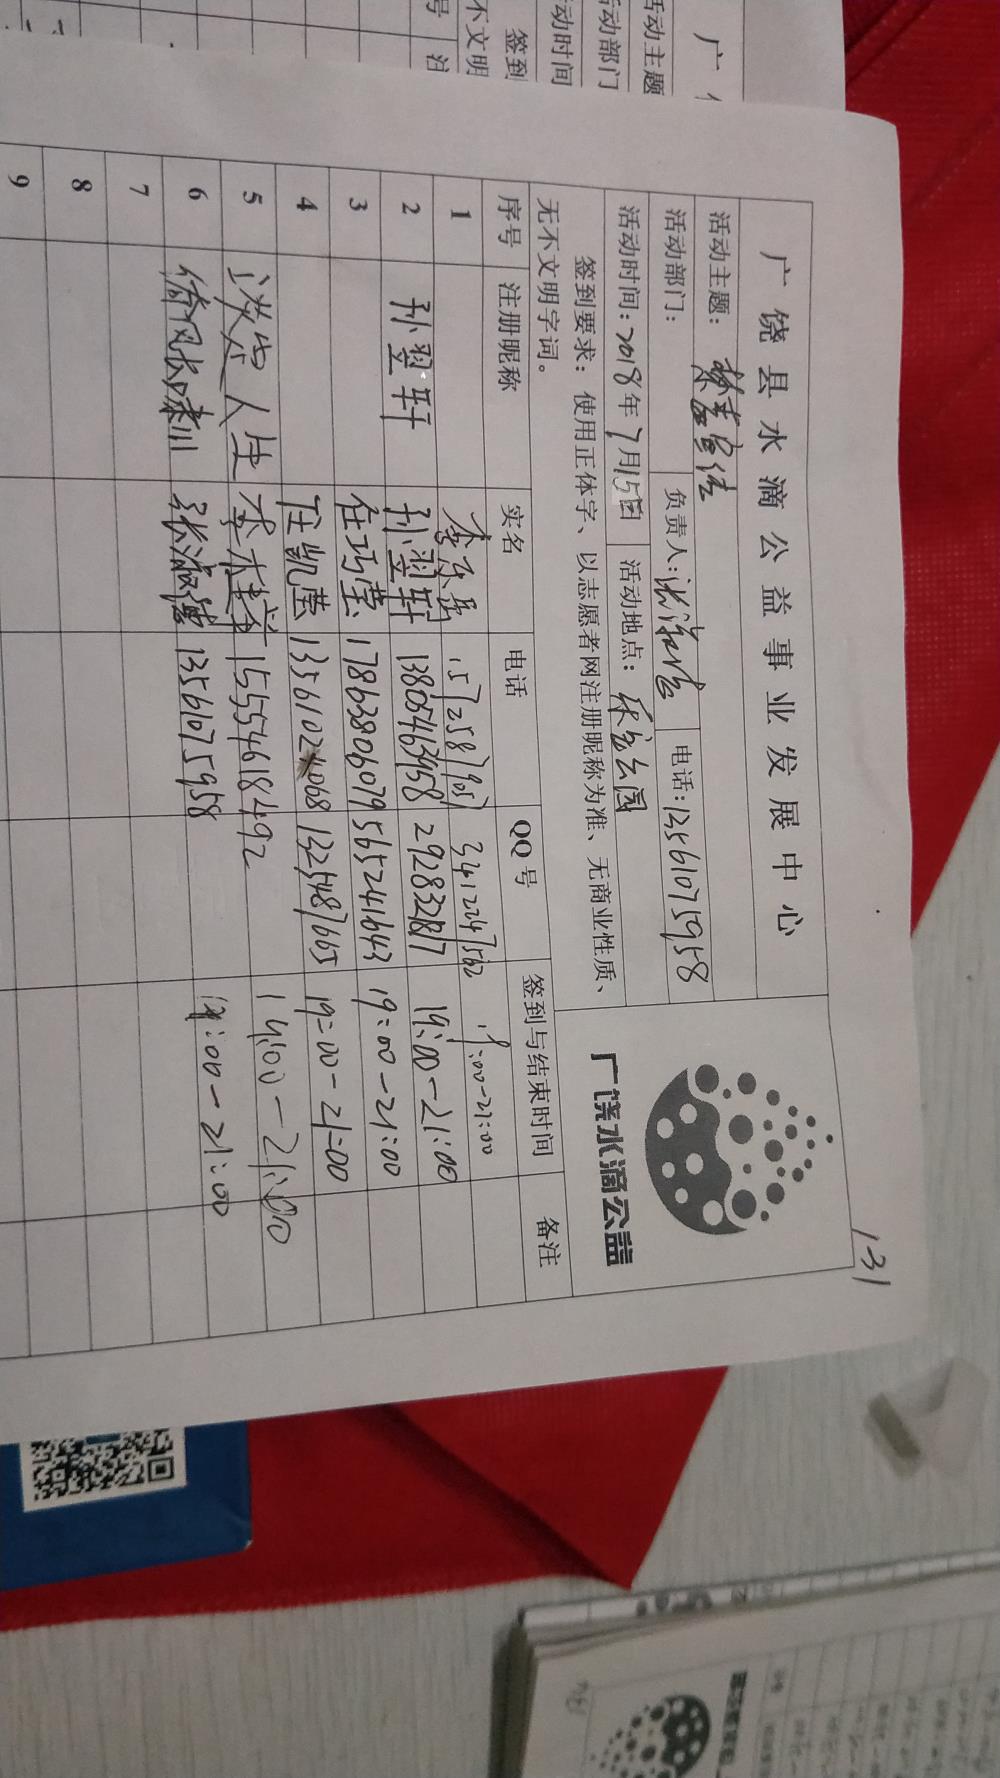 131
广饶县水滴公益事业发展中心
活动主题：禁毒宣传
活动部门： 负责人： 电话：13561075958
活动时间：2018年7月15日 活动地点：乐安公园
广饶水滴公益
签到要求：使用正体字、以志愿者网注册昵称为准、无商业性质、
无不文明字词。
序号 注册昵称 实名 电话 QQ号 签到与结束时间 备注
1 李乐岳 15725871957 3412247562 19:00-21:00
2 孙翌轩 孙翌轩 13805463958 292832817 19:00-21:00
3 任巧莹 17863806079 565241643 19:00-21:00
4 任凯莹 1356102 068 1325487665 19:00-21:00
5 淡若人生 李桂 15554618492 19:00-21:00
6 倚风长啸 张淑 13561075958 19:00-21:00
7
8
9
广
活动主题
活动部门
活动时间
签到
不文明
号 注